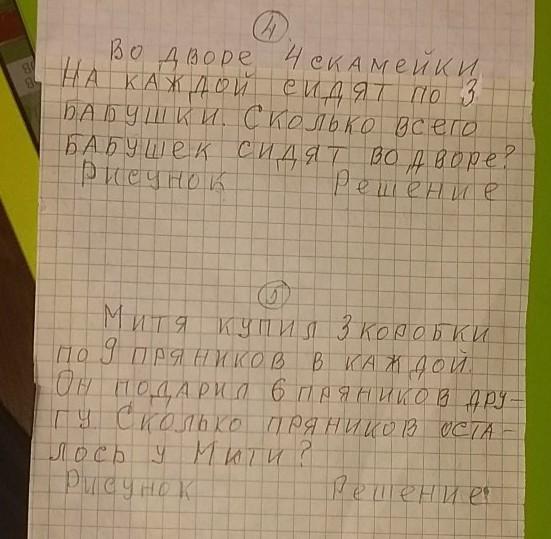 4
Во дворе 4 скамейки
На каждой сидят по 3
бабушки. Сколько всего
бабушек сидят во дворе?
Рисунок Решение
5
Митя купил 3 коробки
по 9 пряников в каждой.
Он подарил 6 пряников дру-
гу. Сколько пряников оста-
лось у Мити?
Рисунок Решение